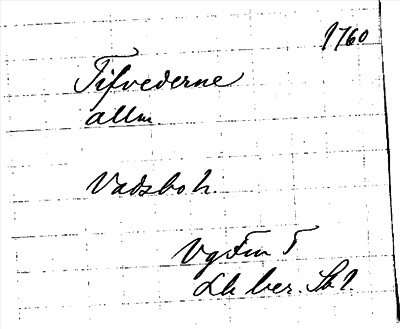 1760
Tifvederne
allm
Vadsbo h.
Vg Fm T
Lh ber. Sb 1.